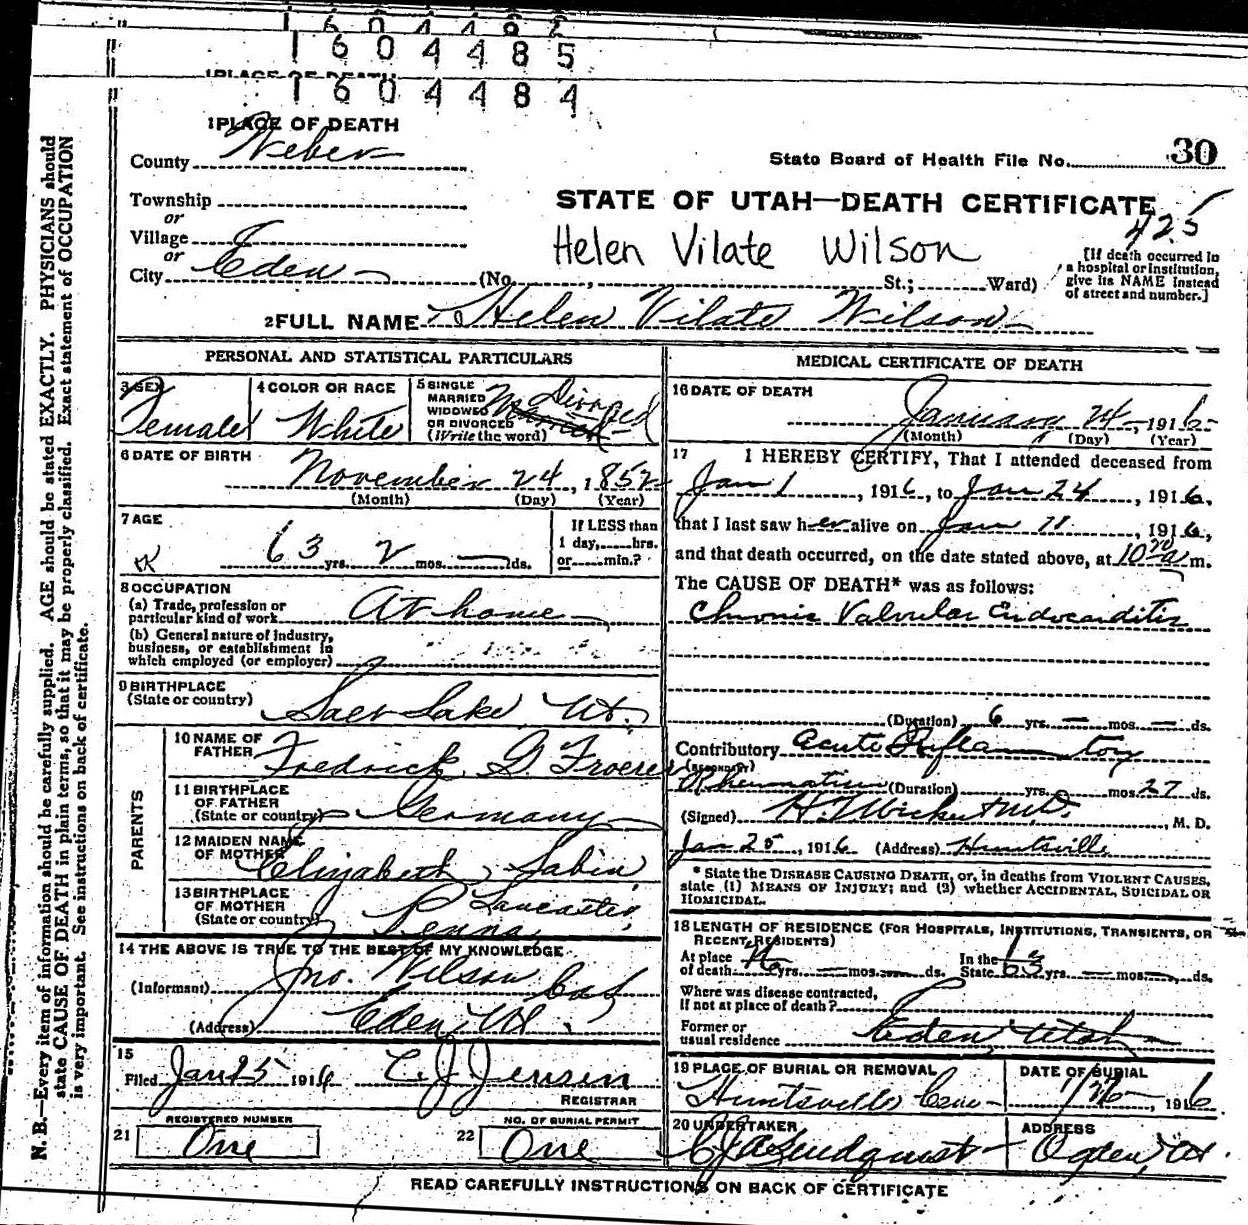 1604485
1 PLACE OF DEATH
1604484
1 PLACE OF DEATH
County Weber
State Board of Health File No. 30
Township
or
STATE OF UTAH—DEATH CERTIFICATE
425
Village
or
Helen Vilate Wilson
City Eden (No. , St.; Ward)
[If death occurred in
a hospital or institution,
give its NAME instead
of street and number.]
2 FULL NAME Helen Vilate Wilson
PERSONAL AND STATISTICAL PARTICULARS
3 SEX
Female
4 COLOR OR RACE
White
5 SINGLE
MARRIED
WIDOWED
OR DIVORCED
(Write the word)
Married
Divorced
6 DATE OF BIRTH
November 24, 1852
(Month) (Day) (Year)
7 AGE
63 yrs. 2 mos. — ds.
If LESS than
1 day, hrs.
or min.?
8 OCCUPATION
(a) Trade, profession or
particular kind of work At home
(b) General nature of industry,
business, or establishment in
which employed (or employer)
9 BIRTHPLACE
(State or country)
Salt Lake, Ut.
PARENTS
10 NAME OF
FATHER
Fredrick G. Froerer
11 BIRTHPLACE
OF FATHER
(State or country) Germany
12 MAIDEN NAME
OF MOTHER
Elizabeth Sabin
13 BIRTHPLACE
OF MOTHER
(State or country)
Lancaster,
Penna,
14 THE ABOVE IS TRUE TO THE BEST OF MY KNOWLEDGE
(Informant) Jno. Wilson
(Address) Eden, Ut.
15
Filed Jan 25 1916 C. J. Jensen
REGISTRAR
REGISTERED NUMBER
21 One
NO. OF BURIAL PERMIT
22 One
MEDICAL CERTIFICATE OF DEATH
16 DATE OF DEATH
January 24, 1916
(Month) (Day) (Year)
17 I HEREBY CERTIFY, That I attended deceased from
Jan 1, 1916, to Jan 24, 1916,
that I last saw her alive on Jan 11, 1916,
and that death occurred, on the date stated above, at 10 a m.
The CAUSE OF DEATH* was as follows:
Chronic Valvular Endocarditis
(Duration) 6 yrs. — mos. — ds.
Contributory Acute Inflammatory
(SECONDARY)
Rheumatism (Duration) yrs. mos. 27 ds.
(Signed) M. D.
Jan 25, 1916 (Address) Huntsville
* State the DISEASE CAUSING DEATH, or, in deaths from VIOLENT CAUSES,
state (1) MEANS OF INJURY; and (2) whether ACCIDENTAL, SUICIDAL OR
HOMICIDAL.
18 LENGTH OF RESIDENCE (FOR HOSPITALS, INSTITUTIONS, TRANSIENTS, OR
RECENT RESIDENTS)
At place
of death yrs. — mos. ds.
In the
State 63 yrs. — mos. — ds.
Where was disease contracted,
If not at place of death?
Former or
usual residence Eden, Utah
19 PLACE OF BURIAL OR REMOVAL
Huntsville Cem
DATE OF BURIAL
1/26, 1916
20 UNDERTAKER
Lindquist
ADDRESS
Ogden, Ut.
READ CAREFULLY INSTRUCTIONS ON BACK OF CERTIFICATE
N. B.—Every item of information should be carefully supplied. AGE should be stated EXACTLY. PHYSICIANS should
state CAUSE OF DEATH in plain terms, so that it may be properly classified. Exact statement of OCCUPATION
is very important. See instructions on back of certificate.